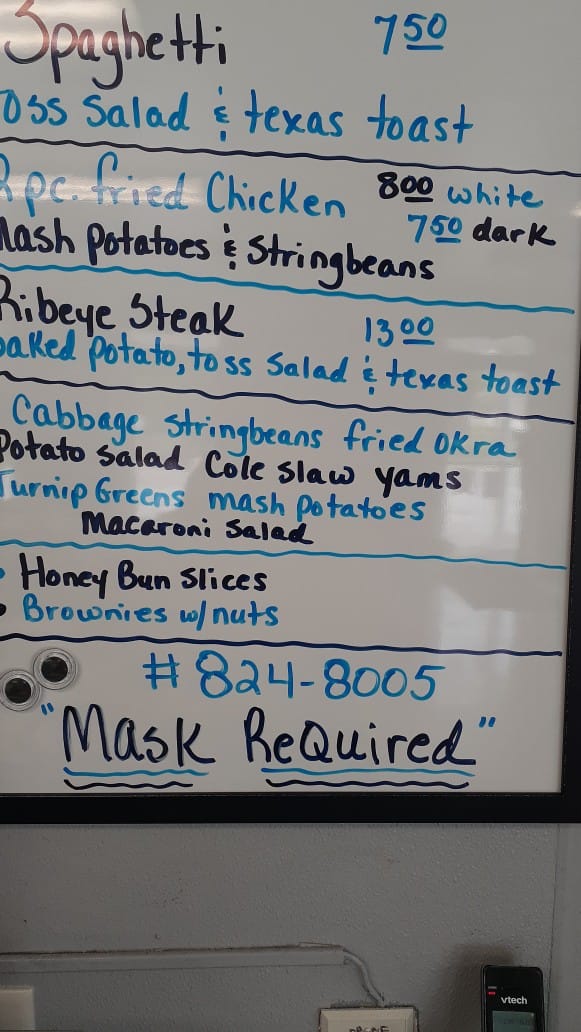 Spaghetti 7 50
oss Salad & texas toast
2 pc. fried Chicken 8 00 white
7 50 dark
Mash Potatoes & Stringbeans
Ribeye Steak 13 00
baked potato, toss Salad & texas toast
Cabbage stringbeans fried okra
Potato Salad Cole Slaw yams
Turnip Greens mash potatoes
Macaroni Salad
• Honey Bun Slices
• Brownies w/nuts
# 824-8005
"Mask ReQuired"
vtech
PHONE